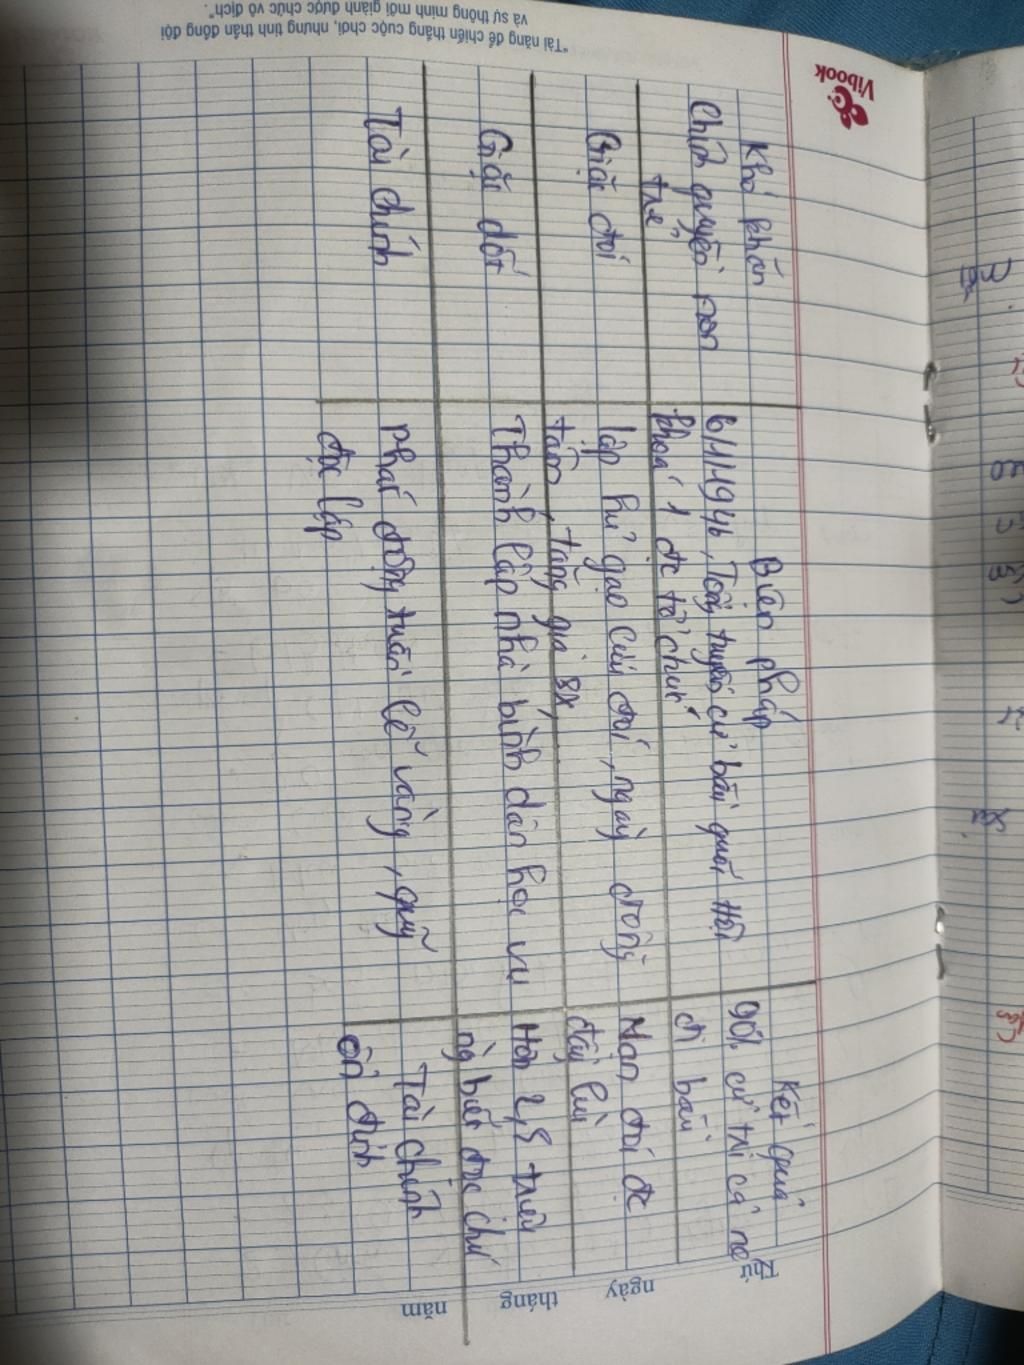 Khó khăn
Biện pháp
Kết quả
Chính quyền non
trẻ
6/1/1946, Tổng tuyển cử bầu quốc Hội
khoá 1 đc tổ chức
90% cử tri cả nc
đi bầu
Giặc đói
lập hũ gạo cứu đói, ngày đồng
tâm, tăng gia sx,
Nạn đói đc
đẩy lùi
Giặc dốt
Thành lập nhà bình dân học vụ
Hơn 2,5 triệu
ng biết đọc chữ
Tài chính
phát động tuần lễ vàng, quỹ
độc lập
Tài chính
ổn định
Vibook
Thứ
ngày
tháng
năm
"Tài năng để chiến thắng cuộc chơi, nhưng tinh thần đồng đội
và sự thông minh mới giành được chức vô địch".